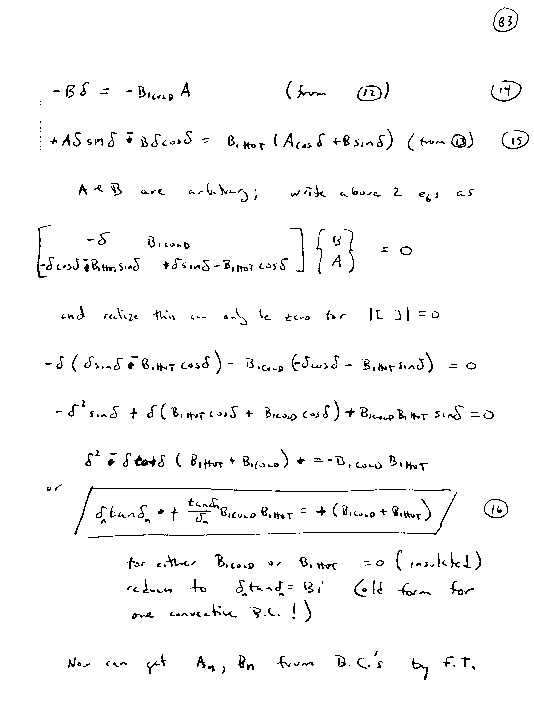 83
-Bδ = -B₁COLD A (from ⑫) ⑭
+Aδ sin δ - Bδ cos δ = B₁HOT (A cos δ + B sin δ) (from ⑬) ⑮
A & B are arbitrary; write above 2 eqs as
[ -δ B₁COLD ] { B }
[ -δcosδ - B₁HOT sinδ +δsinδ - B₁HOT cosδ ] { A } = 0
and realize this can only be zero for |[ ]| = 0
-δ (δ sin δ - B₁HOT cos δ) - B₁COLD (-δ cos δ - B₁HOT sin δ) = 0
-δ² sin δ + δ (B₁HOT cos δ + B₁COLD cos δ) + B₁COLD B₁HOT sin δ = 0
δ² - δ cot δ (B₁HOT + B₁COLD) = -B₁COLD B₁HOT
or
δₙ tan δₙ + tan δₙ/δₙ B₁COLD B₁HOT = + (B₁COLD + B₁HOT) ⑯
for either B₁COLD or B₁HOT = 0 (insulated)
reduces to δₙ tan δₙ = Bi (old form for
one convective B.C.!)
Now can get Aₙ, Bₙ from B.C.'s by F.T.